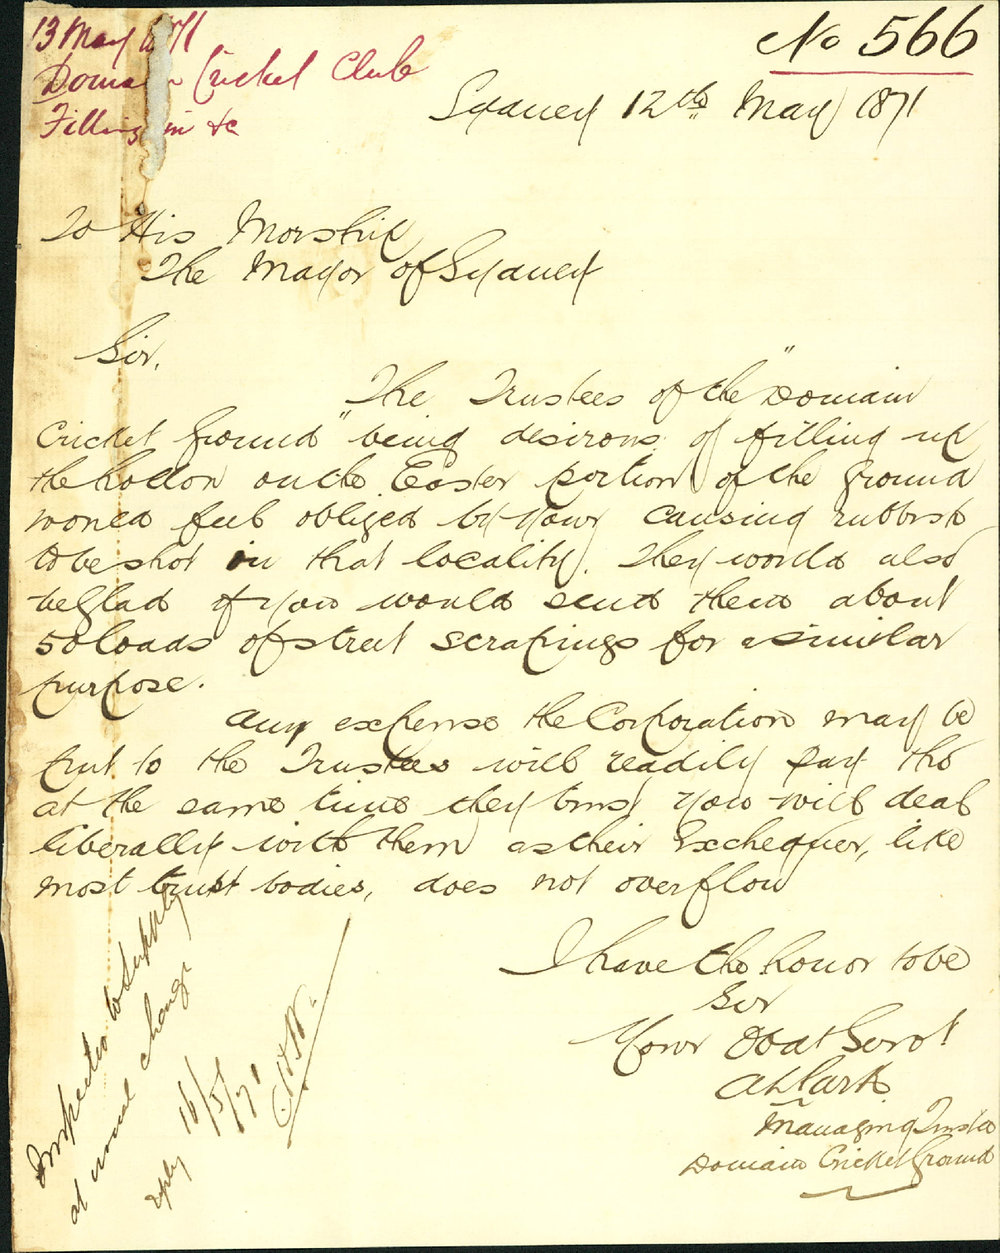 13 May 1871
Domain Cricket Club
Filling in &c
No 566
Sydney 12th May 1871
To His Worship
The Mayor of Sydney
Sir,
The Trustees of the "Domain
Cricket Ground" being desirous of filling up
the hollow on the Easter portion of the ground
would feel obliged by your causing rubbish
to be shot in that locality. They would also
be glad if you would send them about
50 loads of street scrapings for a similar
purpose.
Any expense the Corporation may be
put to the Trustees will readily pay tho
at the same time they trust you will deal
liberally with them as their Exchequer, like
most trust bodies, does not overflow
I have the honor to be
Sir
Your Obdt Servt
Managing Trustee
Domain Cricket Ground
Inspector to supply
at usual charge
reply 16/5/71